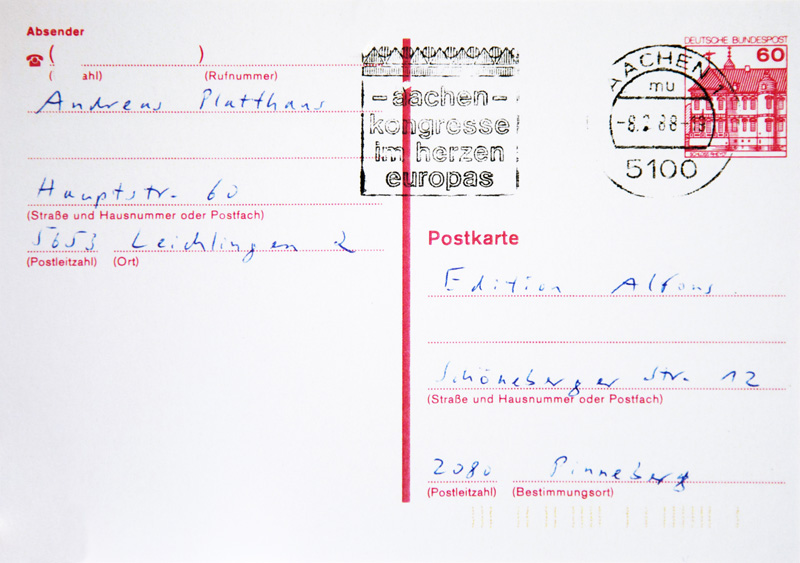 Absender
(                    )
( ahl) (Rufnummer)
Andreas Platthaus
Hauptstr. 60
(Straße und Hausnummer oder Postfach)
5653 Leichlingen 2
(Postleitzahl) (Ort)
– aachen –
kongresse
im herzen
europas
AACHEN 1
mu
-8.2.88-19
5100
DEUTSCHE BUNDESPOST
60
Postkarte
Edition Alfons
Schöneberger Str. 12
(Straße und Hausnummer oder Postfach)
2080 Pinneberg
(Postleitzahl) (Bestimmungsort)